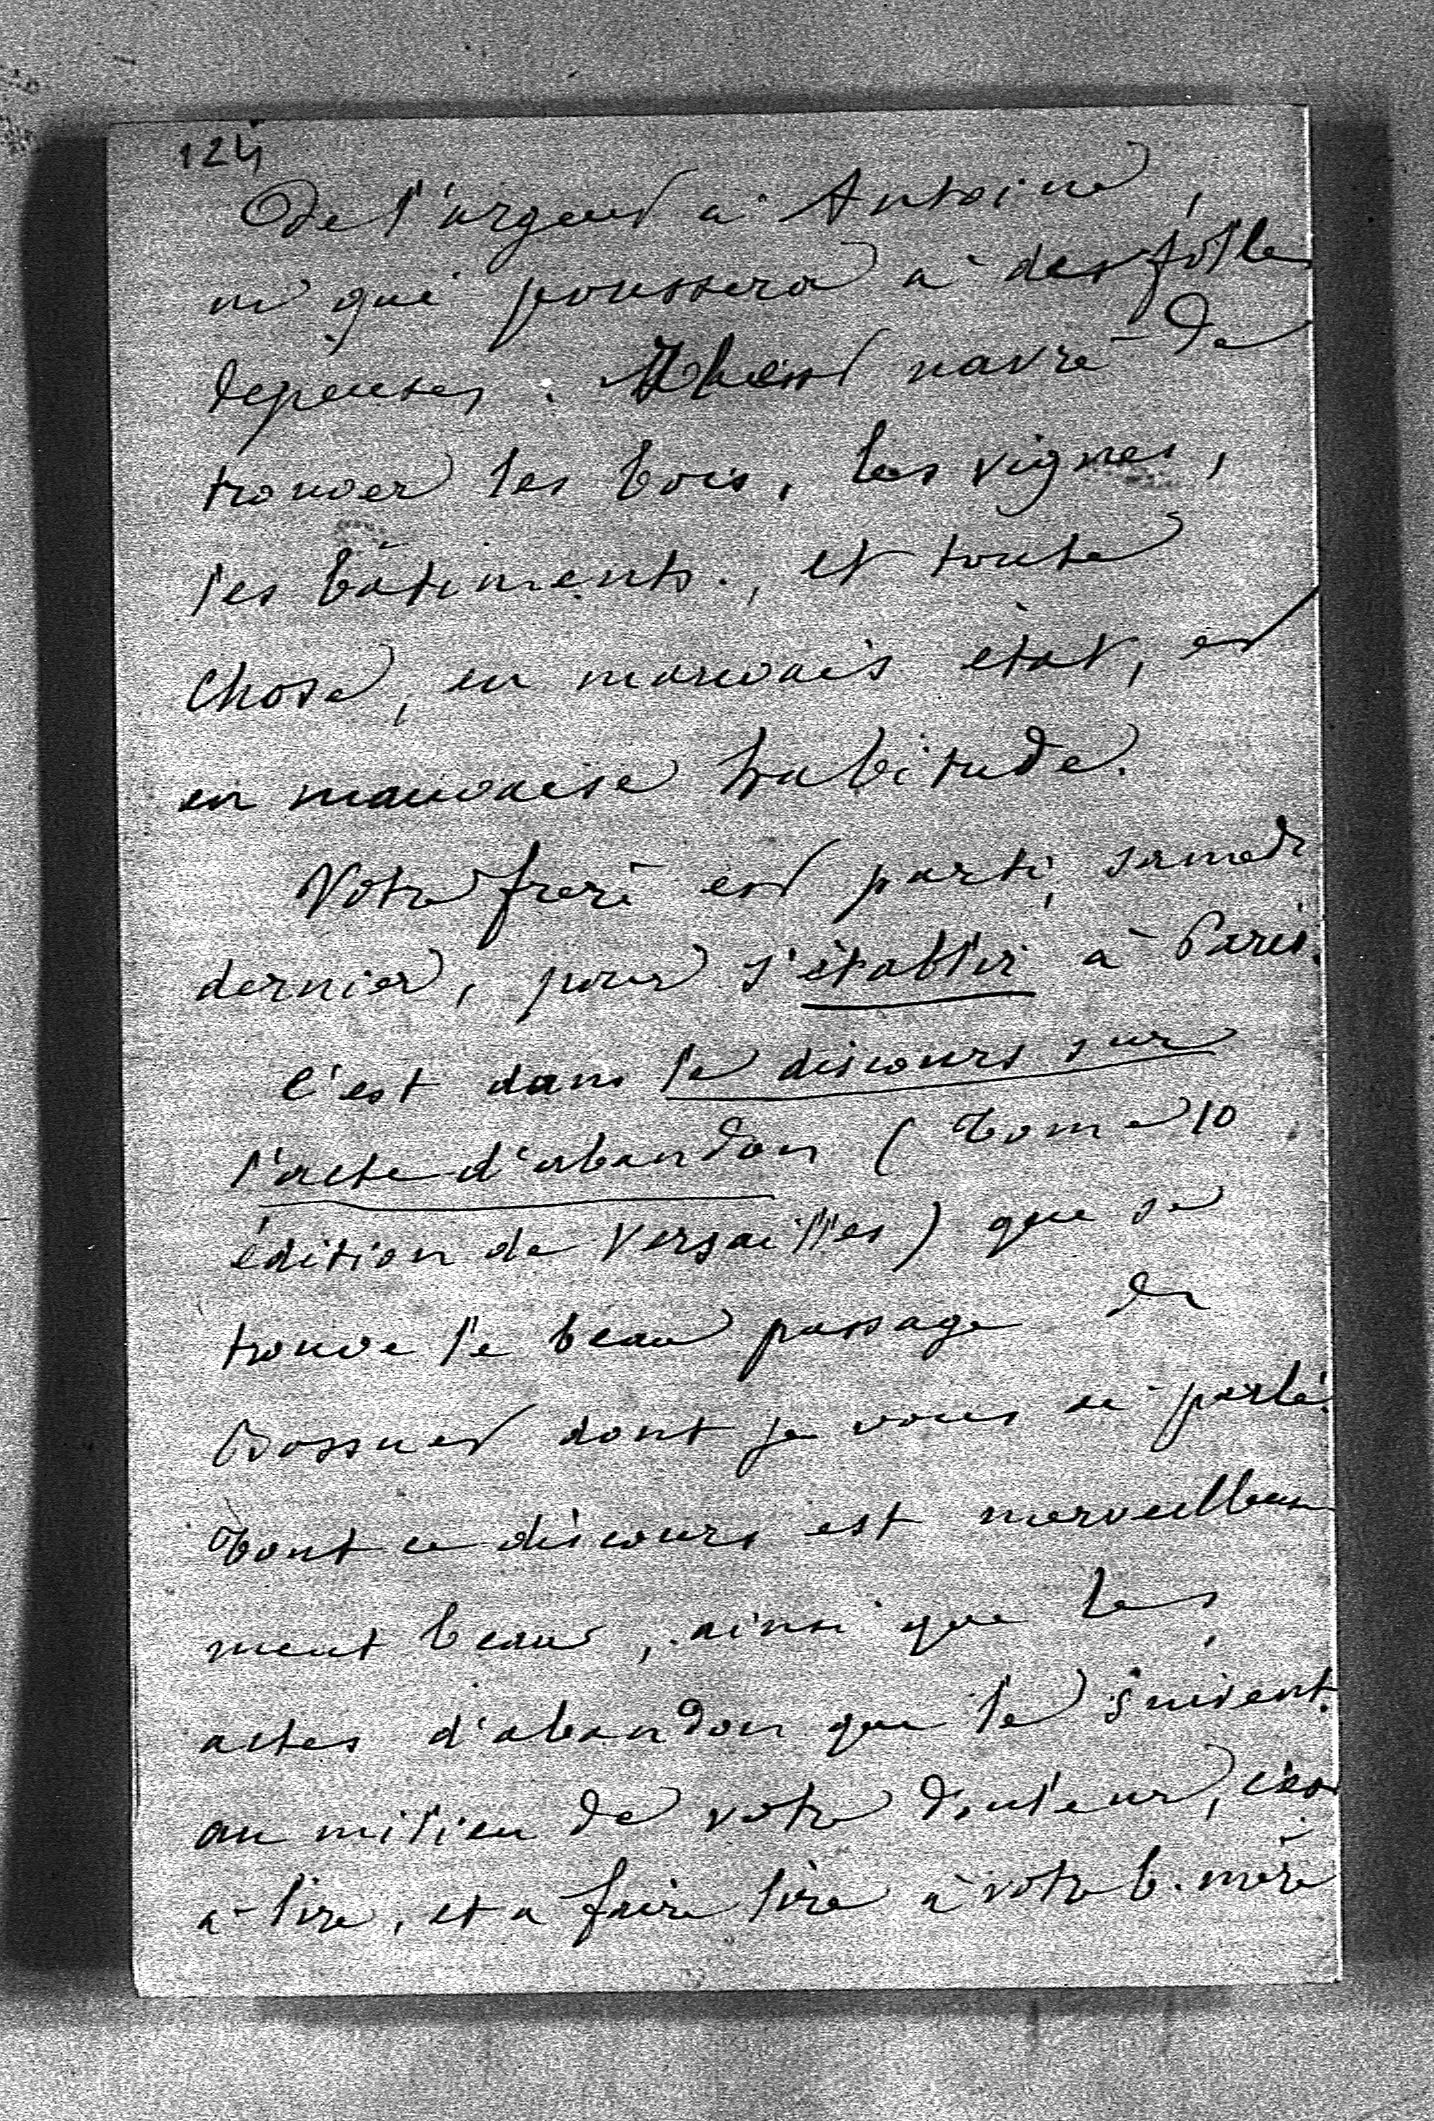 124
De l'argent à Antoine,
ni qui poussera à des folles
depenses. Il est navré de
trouver les bois, les vignes,
les bâtiments, et toute
chose, en mauvais état, et
en mauvaise habitude.
Votre frère est parti, samedi
dernier, pour s'établir à Paris.
C'est dans le discours sur
l'acte d'abandon (Tome 10
édition de Versailles) que se
trouve le beau passage de
Bossuet dont je vous ai parlé.
Tout ce discours est merveilleuse
ment beau, ainsi que les
actes d'abandon que le suivent.
au milieu de votre douleur, c'est
à lire, et a faire lire à votre b. mère